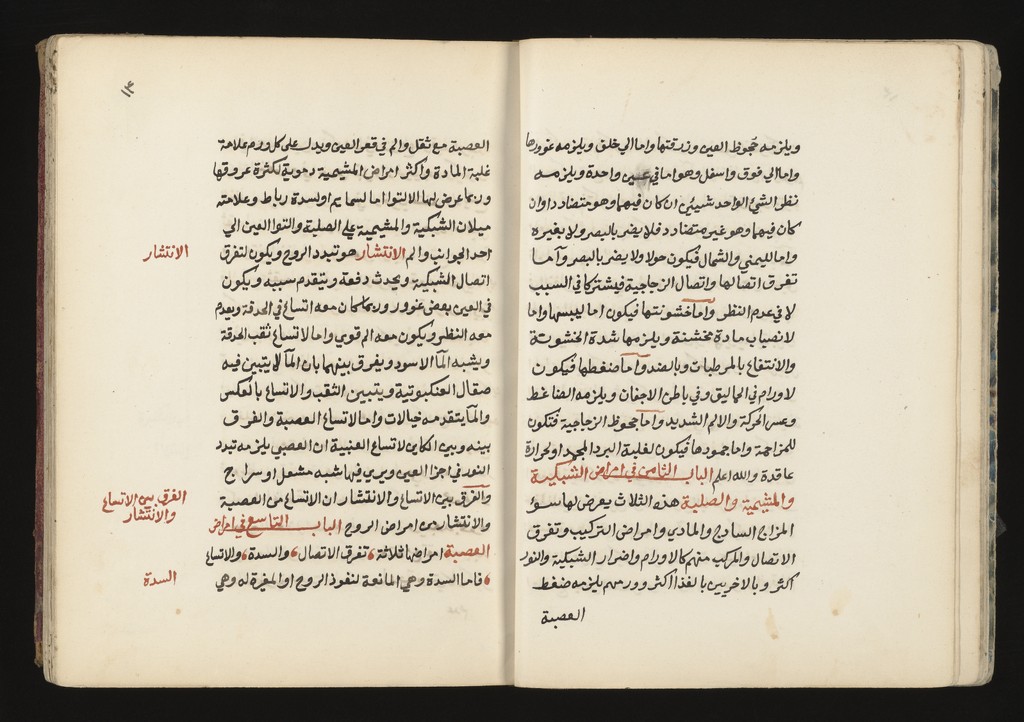 ويلزمه جحوظ العين وزرقتها واما الي خلق ويلزمه غوورها
واما الي فوق واسفل وهو اما في عين واحدة ويلزمه
نظر الشئ الواحد شيئين ان كان فيهما وهو متضادد وان
كان فيهما وهو غير متضادد فلا يضر بالبصر ولا بغيره
واما لليمني والشمال فيكون حولا ولا يضر بالبصر وآما
تفرق اتصالها واتصال الزجاجية فيشتركا في السبب
لا في عدم النظر وآما خشونتها فيكون اما ليبسها واما
لانصباب مادة مخشنة ويلزمها شدة الخشونة
والانتفاع بالمرطبات وبالضد وآما ضغطها فيكون
لاورام في الحماليق وفي باطن الاجفان ويلزمه الضاغط
وعسر الحركة والالم الشديد وآما جحوظ الزجاجية فتكون
للمزاحمة واما جمودها فيكون لغلبة البرد المجمد او لحرارة
عاقدة والله اعلم الباب الثامن في امراض الشبكية
والمشيمية والصلبة هذه الثلاث يعرض لها سوء
المزاج الساذج والمادي وامراض التركيب وتفرق
الاتصال والمركب منهم كالاورام واضرار الشبكية والنور
اكثر وبالاخريين بالغذا اكثر وورمهم يلزمه ضغط
العصبة
١٣
العصبة مع ثقل والم في قعر العين ويدل علي كل ورم علامة
غلبة المادة واكثر امراض المشيمية دموية لكثرة عروقها
وربما عرض لها الالتوا اما لسا يم او لسدة رباط وعلامته
ميلان الشبكية والمشيمية علي الصلبة والتوا العين الي
احد الجوانب والم الانتشار هو تبدد الروح ويكون لتفرق
الانتشار
اتصال الشبكية ويحدث دفعة ويتقدم سببه ويكون
في العين بعض غوور وربما كان معه اتساع في الحدقة ويعدم
معه النظر ويكون معه الم قوي واما الاتساع ثقب الحدقة
ويشبه المآ الاسود ويفرق بينهما بان المآ لا يتبين فيه
صقال العنكبوتية ويتبين الثقب والاتساع بالعكس
والمآ يتقدمه خيالات واما لاتساع العصبة والفرق
بينه وبين الكاين لاتساع العنبية ان العصبي يلزمه تبدد
النور في اجزا العين ويري فيها شبه مشعل او سراج
والفرق بين الاتساع والانتشار ان الاتساع من العصبة
الفرق بين الاتساع
والانتشار
والانتشار من امراض الروح الباب التاسع في امراض
العصبة امراضها ثلاثة تفرق الاتصال والسدة والاتساع
فاما السدة وهي المانعة لنفوذ الروح او المغيرة له وهي
السدة